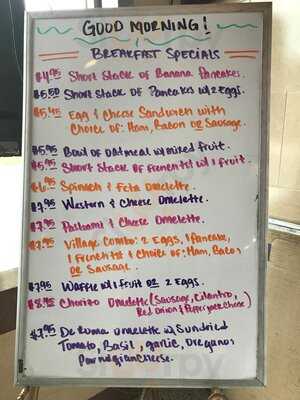 GOOD MORNING!
BREAKFAST SPECIALS
$4.95 Short Stack of Banana Pancakes.
$5.50 Short Stack of Pancakes w/ 2 Eggs.
$5.45 Egg & Cheese Sandwich with
Choice of: Ham, Bacon or Sausage.
$5.95 Bowl of Oatmeal w/ mixed fruit.
$5.95 Short Stack of French tst w/ 1 fruit.
$6.95 Spinach & Feta Omelette.
$7.95 Western & Cheese Omelette.
$7.95 Pastrami & Cheese Omelette.
$7.95 Village Combo: 2 Eggs, 1 Pancake,
1 French tst & Choice of: Ham, Bacon
or Sausage.
$7.95 Waffle w/ 1 fruit or 2 eggs.
$8.95 Chorizo Omelette (Sausage, Cilantro,
Red Onion & Pepperjack Cheese)
$7.95 De Roma Omelette w/ Sundried
Tomato, Basil, garlic, Oregano &
Parmigian Cheese.